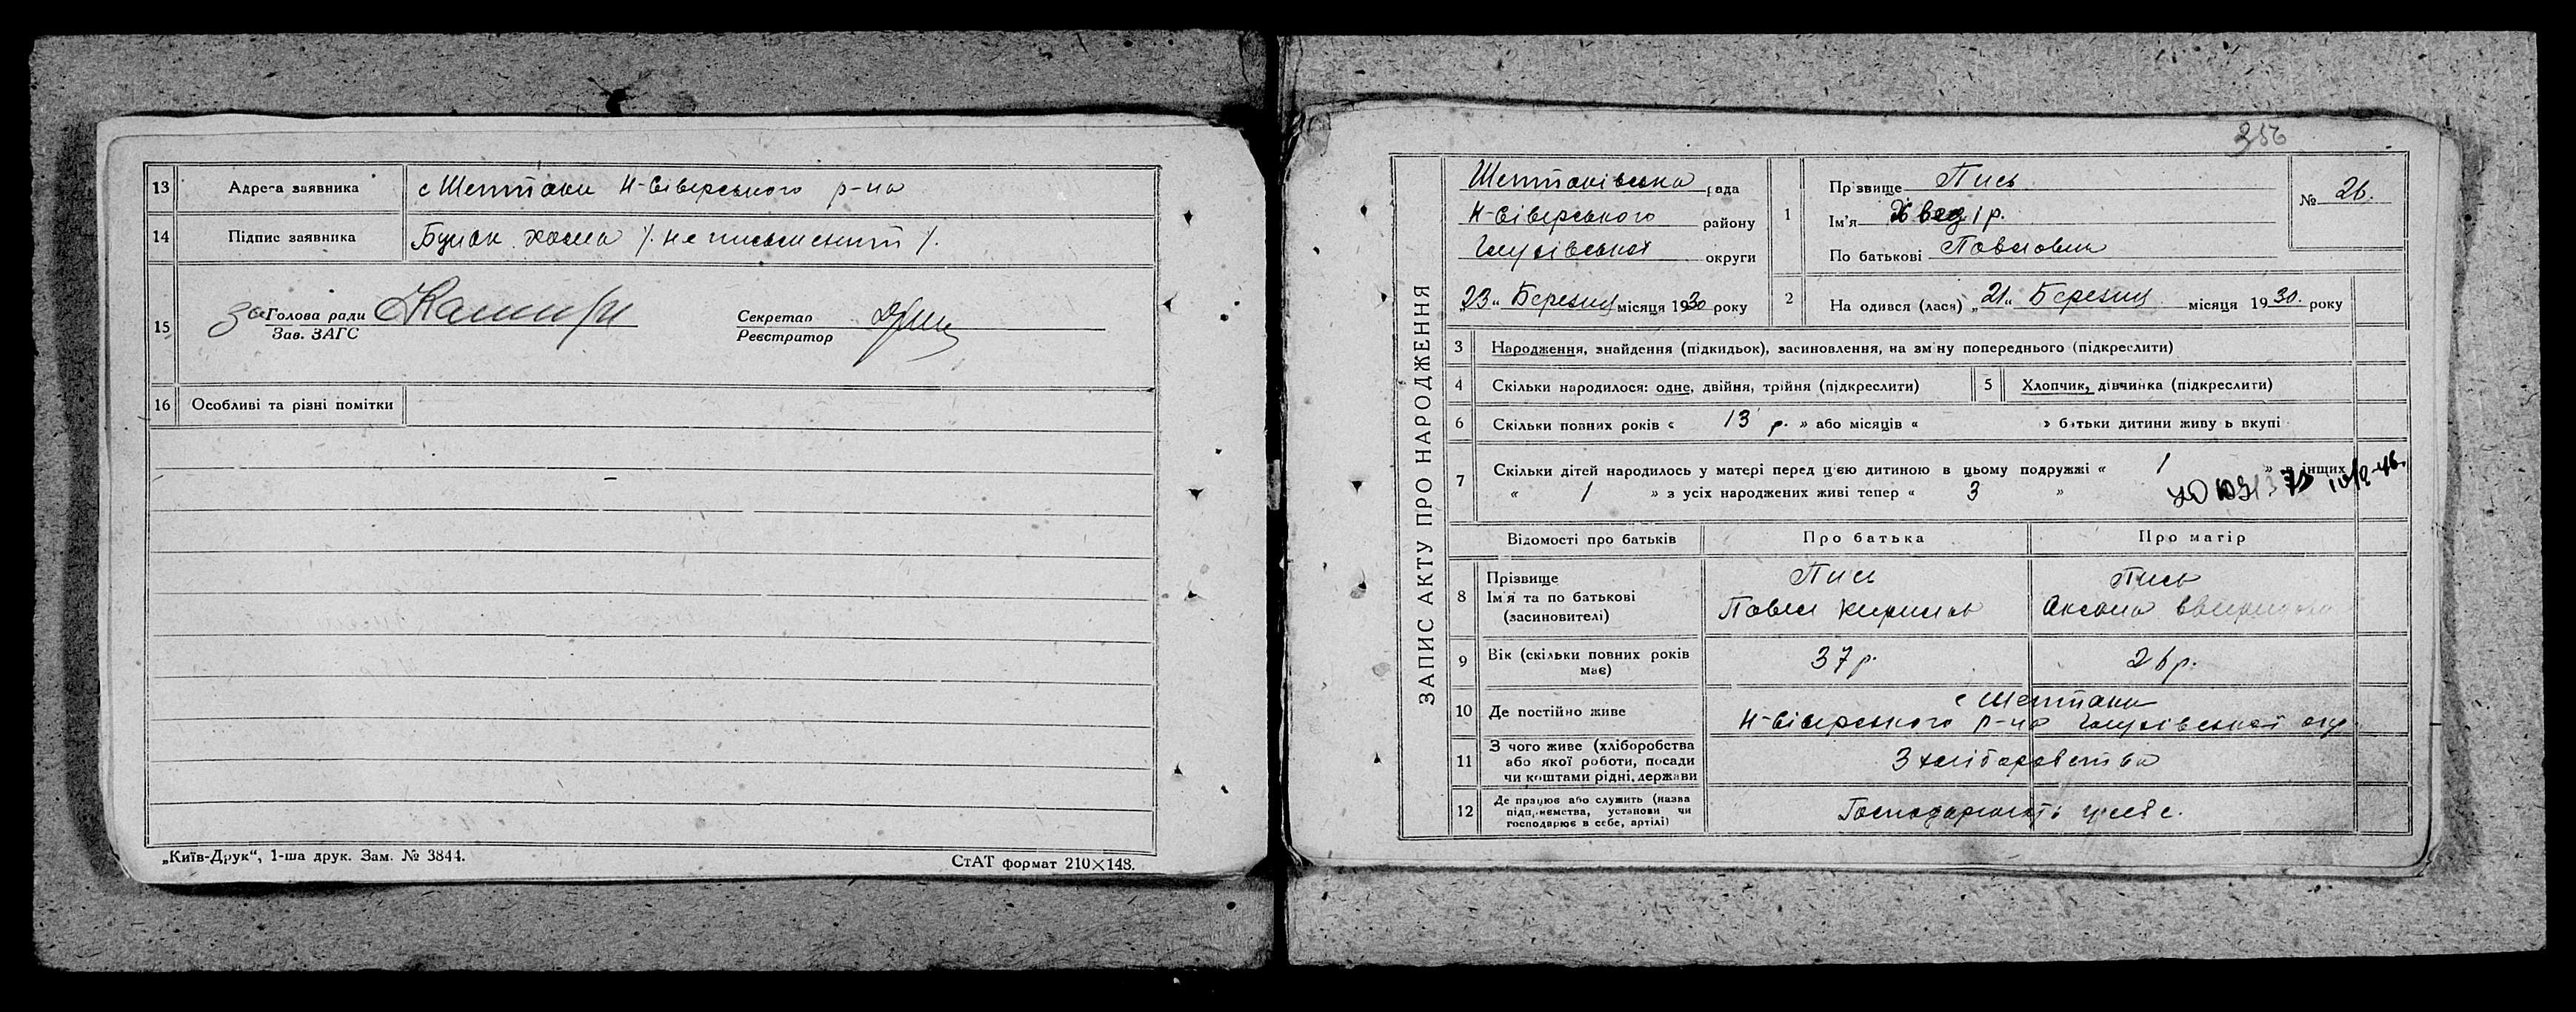 13 Адреса заявника с Шептаки Н-Сіверського р-на
14 Підпис заявника Буцак Хома /. не письменний /.
15 за Голова ради
Зав. ЗАГС
Секретар
Реєстратор
16 Особливі та різні помітки
„Київ-Друк“, 1-ша друк. Зам. № 3844.
СтАТ формат 210×148.
356
ЗАПИС АКТУ ПРО НАРОДЖЕННЯ
Шептаківська рада
Н-Сіверського району
Глухівської округи
„23“ Березня місяця 1930 року
1 Прізвище Пись
Ім’я Хведір.
По батькові Павлович
№ 26.
2 На одився (лася) „21“ Березня місяця 1930. року
3 Народження, знайдення (підкидьок), засиновлення, на зміну попереднього (підкреслити)
4 Скільки народилося: одне, двійня, трійня (підкреслити)
5 Хлопчик, дівчинка (підкреслити)
6 Скільки повних років « 13 р. » або місяців « » батьки дитини живуть вкупі
7 Скільки дітей народилось у матері перед цією дитиною в цьому подружжі « 1 » в інщих
« 1 » з усіх народжених живі тепер « 3 »
Відомості про батьків
Про батька
Про матір
8 Прізвище
Ім’я та по батькові
(засиновителі)
Пись
Павел Кирилов
Пись
Аксана
9 Вік (скільки повних років має)
37 р.
26 р.
10 Де постійно живе
с Шептаки
Н-Сіверського р-на Глухівської окр
11 З чого живе (хліборобства
або якої роботи, посади
чи коштами рідні, держави
З хліборобства
12 Де працює або служить (назва
підприємства, установи чи
господарює в себе, артілі)
Господарюють у себе.